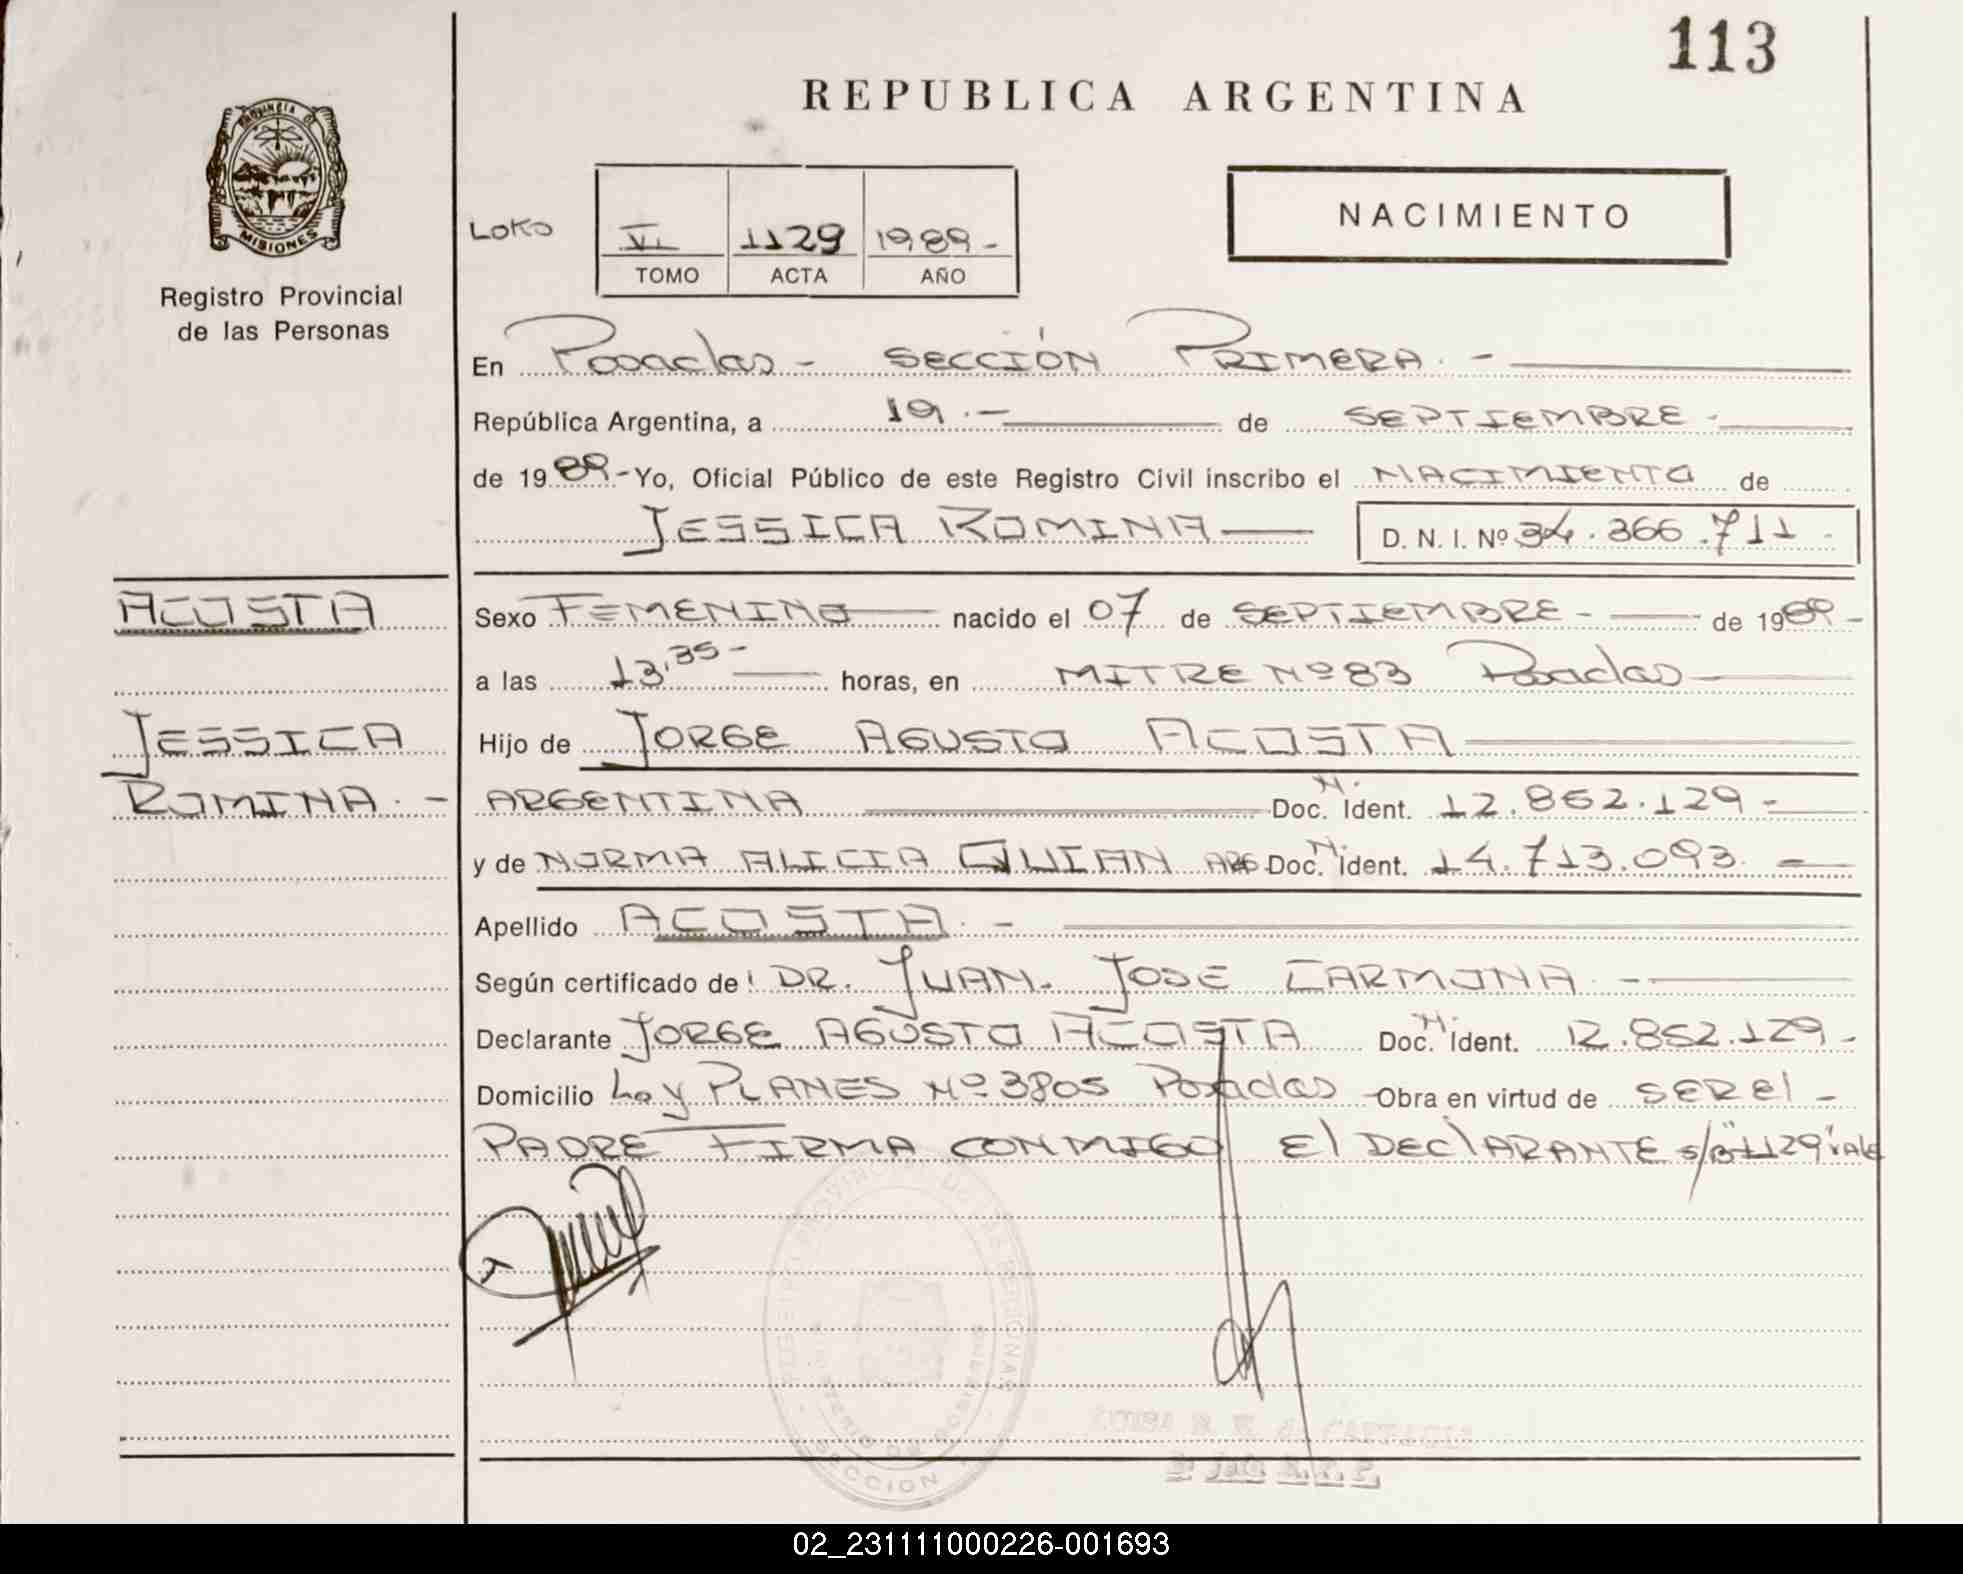 113
REPUBLICA ARGENTINA
PROVINCIA DE
MISIONES
Registro Provincial
de las Personas
NACIMIENTO
LOKO
VI 1129 1989.-
TOMO ACTA AÑO
En Posadas - SECCIÓN PRIMERA.-
República Argentina, a 19.- de SEPTIEMBRE -
de 1989.- Yo, Oficial Público de este Registro Civil inscribo el NACIMIENTO de
JESSICA ROMINA D. N. I. Nº 34.366.711.-
ACOSTA
JESSICA
ROMINA.-
Sexo FEMENINO nacido el 07 de SEPTIEMBRE - de 1989-
a las 13,35- horas, en MITRE Nº 83 Posadas
Hijo de JORGE AGUSTO ACOSTA
ARGENTINA Doc. N. Ident. 12.862.129-
y de NORMA ALICIA QUIAN ARG Doc. N. Ident. 14.713.093. -
Apellido ACOSTA.-
Según certificado de: DR. JUAN. JOSE CARMONA -
Declarante JORGE AGUSTO ACOSTA Doc. N. Ident. 12.852.129-
Domicilio Lo y PLANES Nº 3805 Posadas - Obra en virtud de SER El -
PADRE FIRMA CONMIGO El DEClARANTE s/B "1129" vale
SECCION
02_231111000226-001693